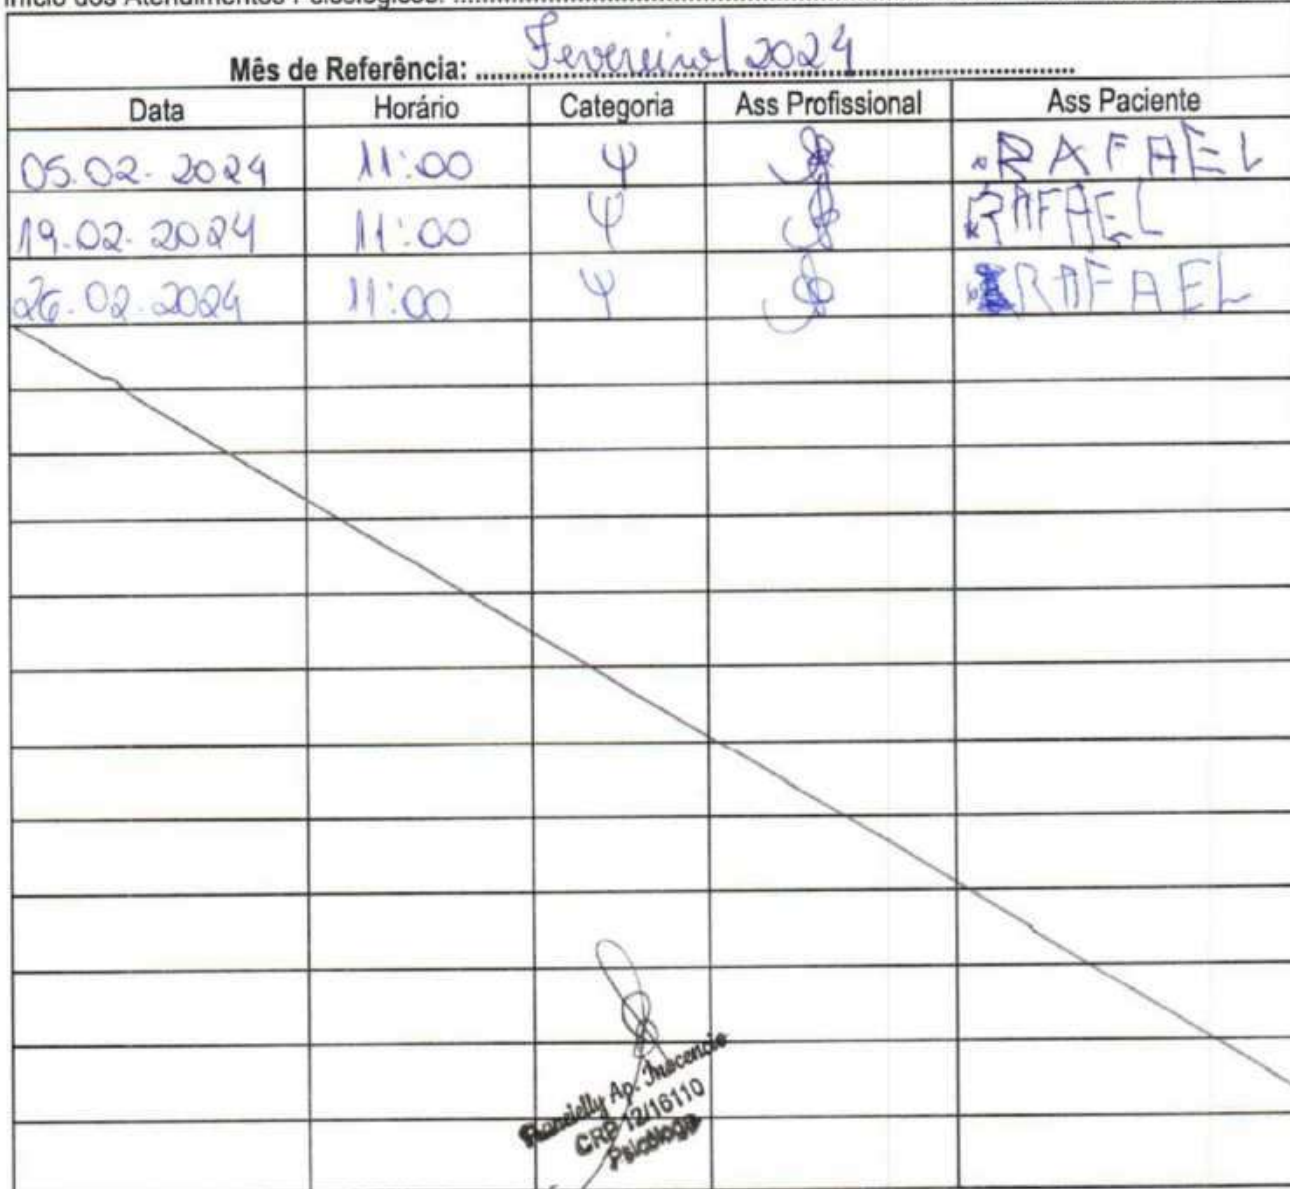 Início dos Atendimentos Psicológicos:
Mês de Referência: Fevereiro/2024
Data Horário Categoria Ass Profissional Ass Paciente
05.02.2024 11:00 Ψ RAFAEL
19.02.2024 11:00 Ψ RAFAEL
26.02.2024 11:00 Ψ RAFAEL
Francielly Ap. Inocencio
CRP 12/16110
Psicóloga